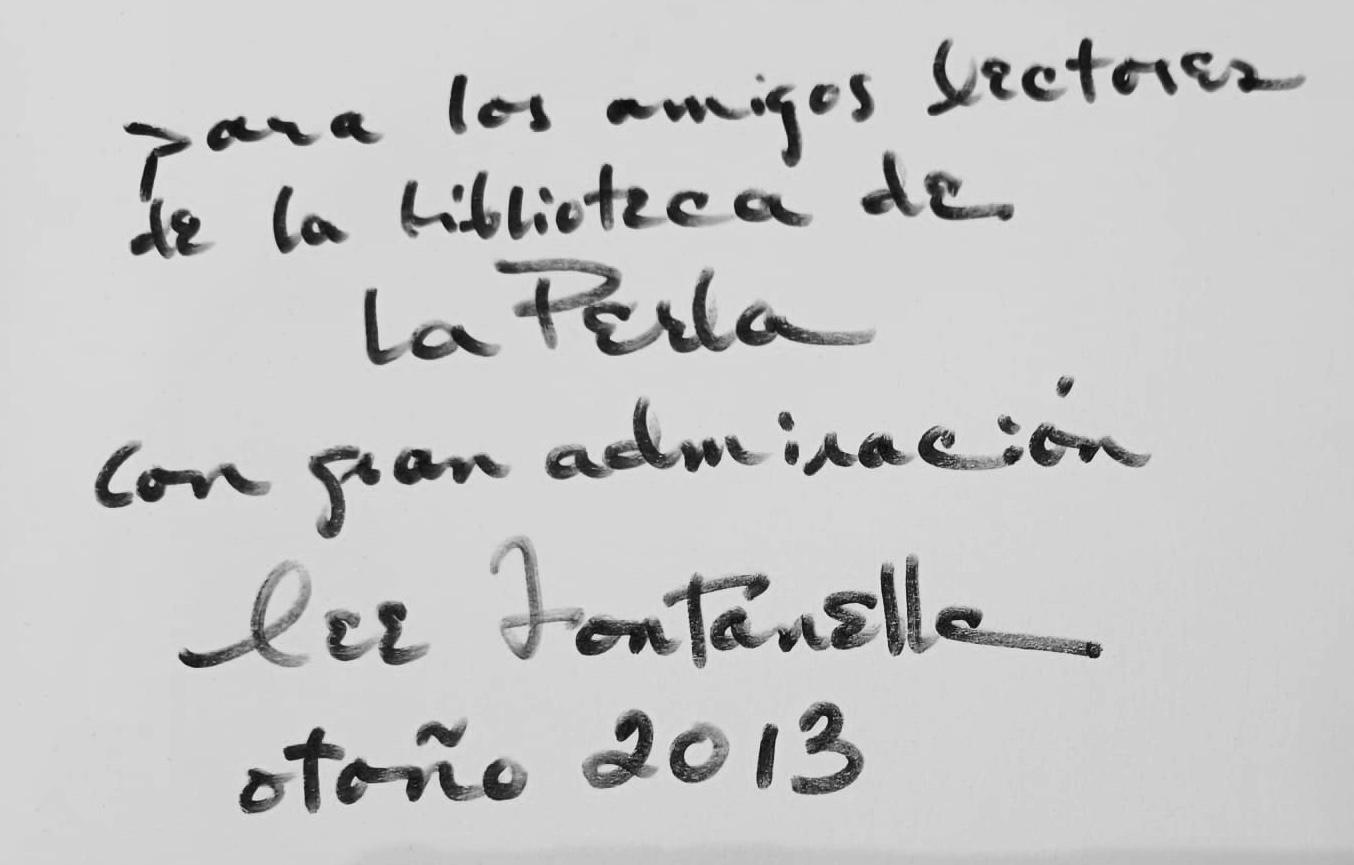 para los amigos lectores
de la biblioteca de
La Perla
con gran admiración
lee Fontanella
otoño 2013